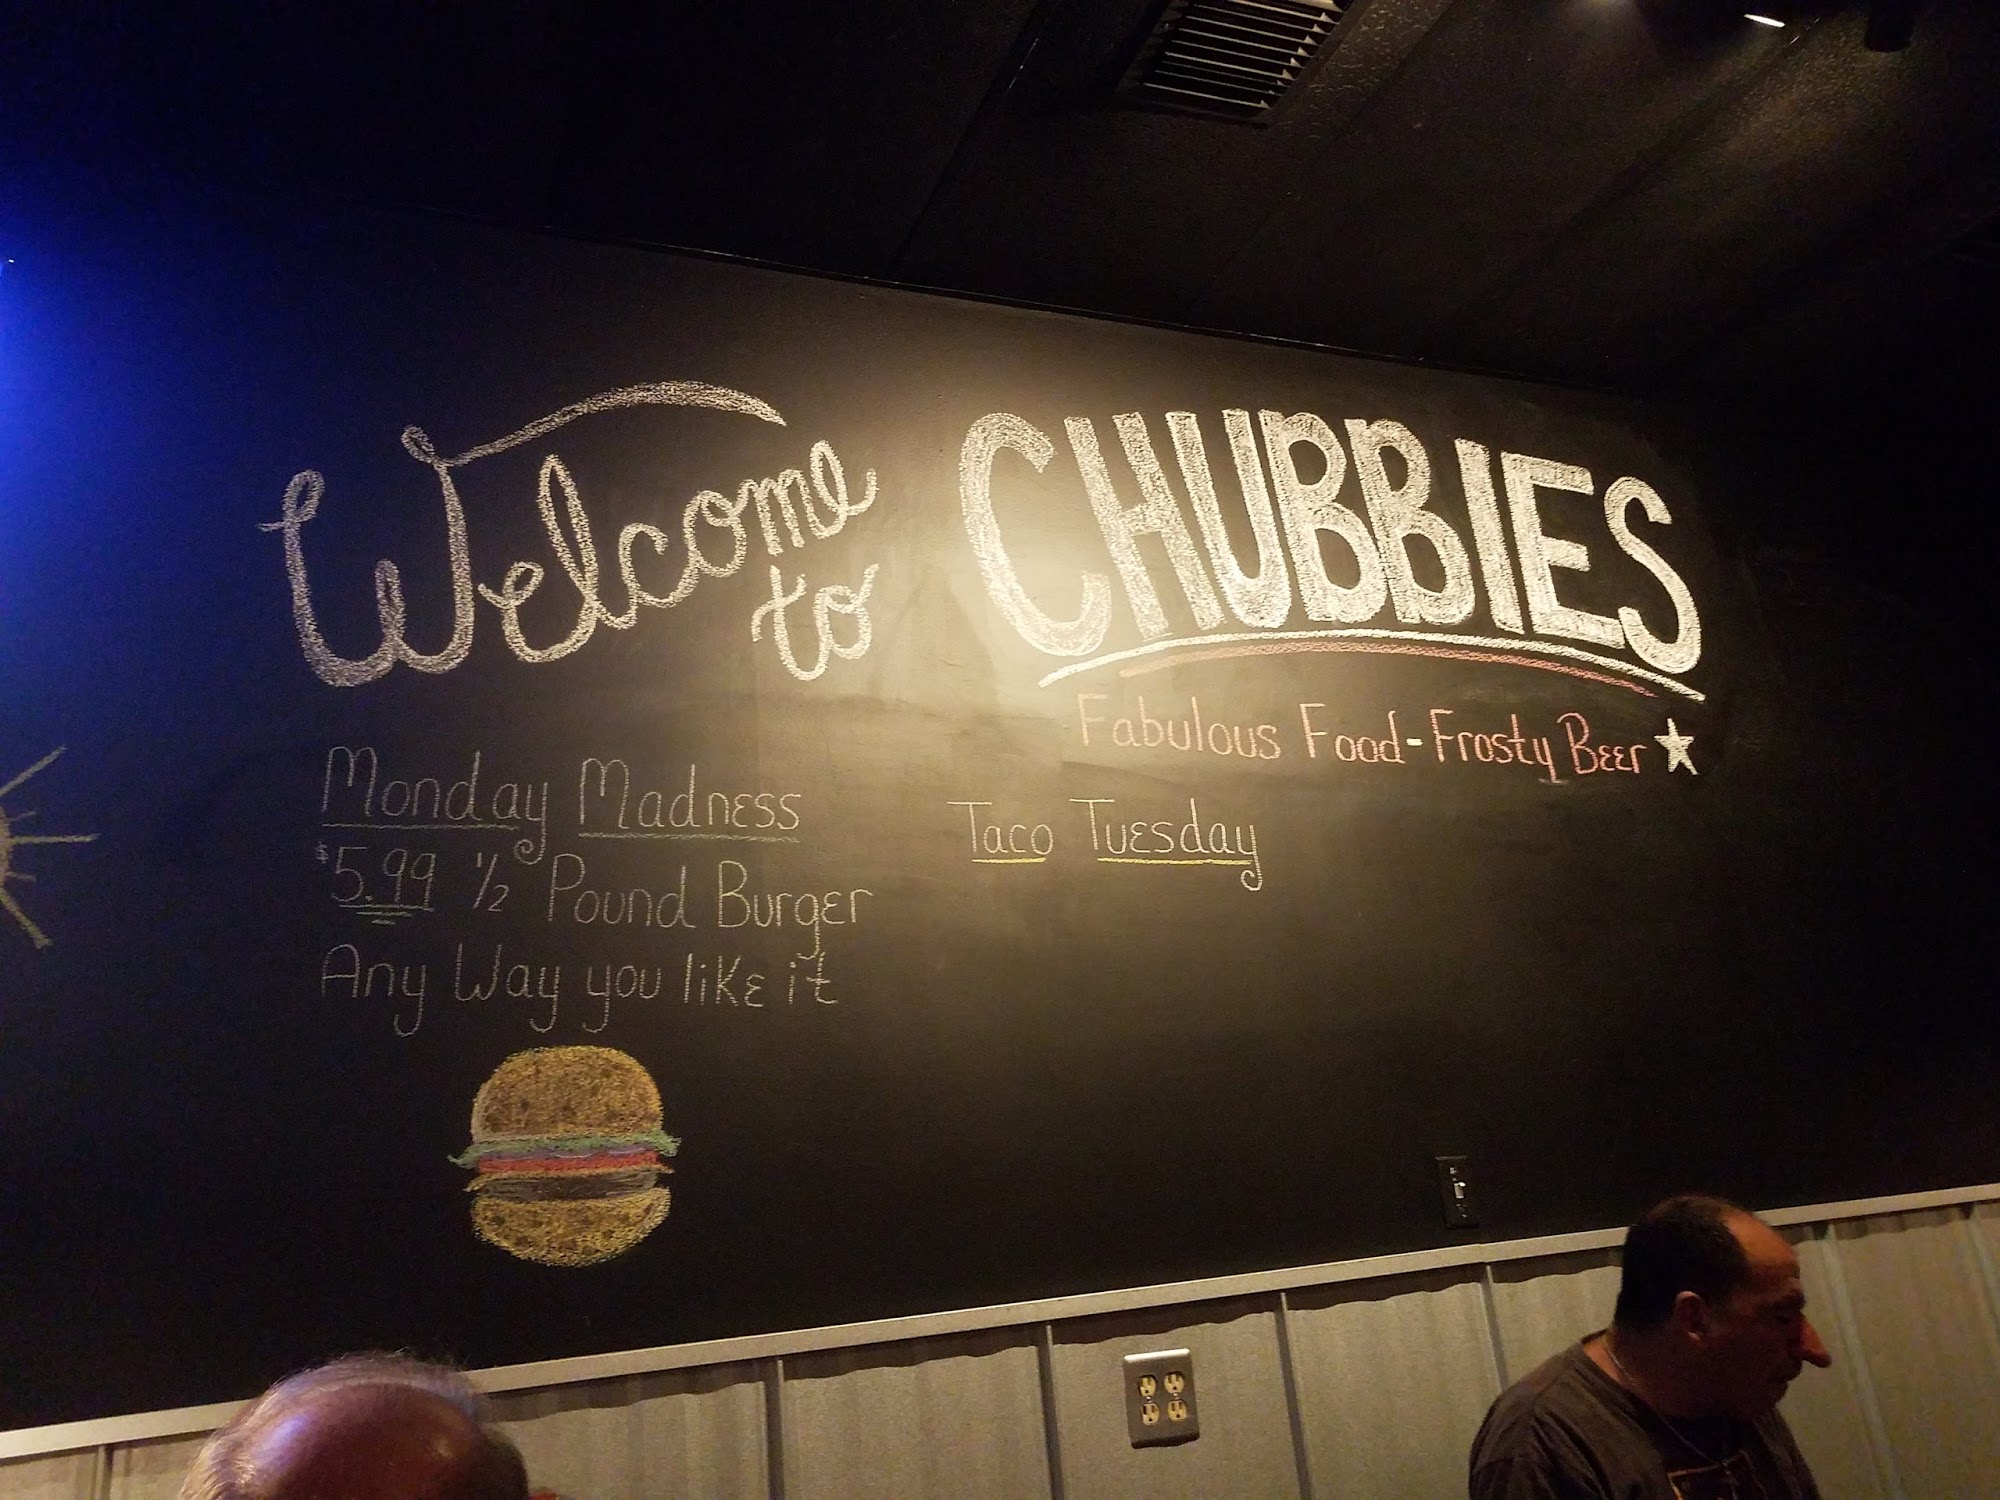 Welcome
to
CHUBBIES
Fabulous Food-Frosty Beer
Monday Madness
$5.99 1/2 Pound Burger
Any Way you like it
Taco Tuesday